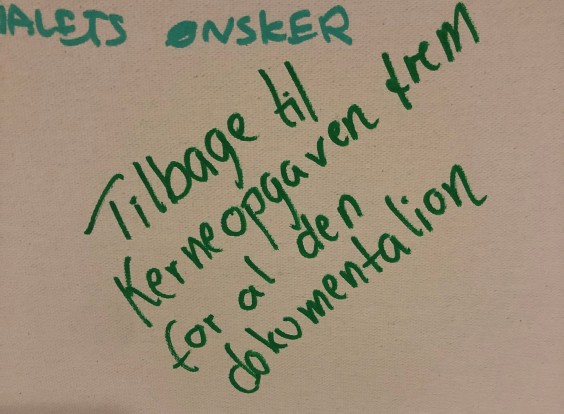 ALETS ØNSKER
Tilbage til
Kerneopgaven frem
for al den
dokumentation